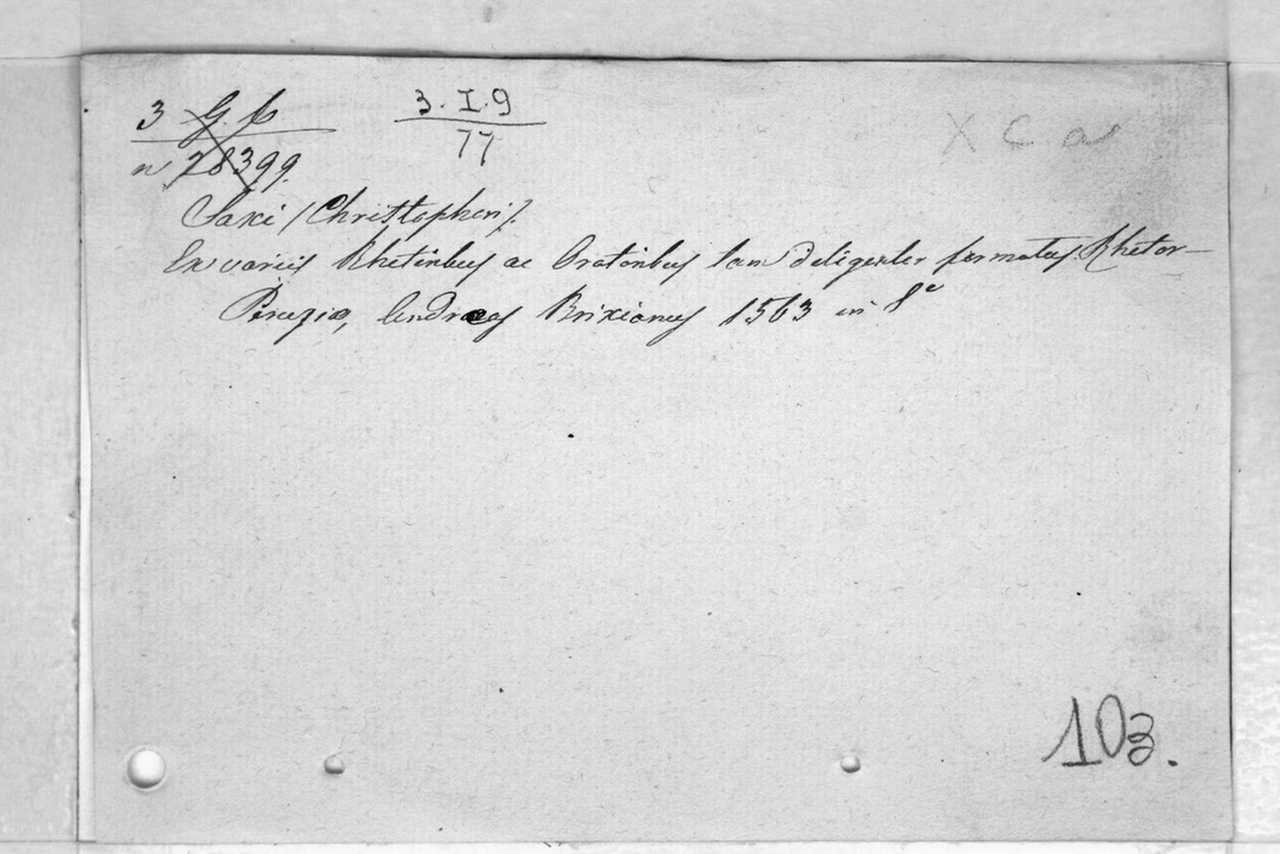 3 G. b 3. I. 9
n 28399. 77
X C a
Saxi (Christophori).
Ex variis Rhetoribus ac Oratoribus tam diligenter formatus Rhetor—
Perugia, Andreas Brixianus 1563 in 8°
103.